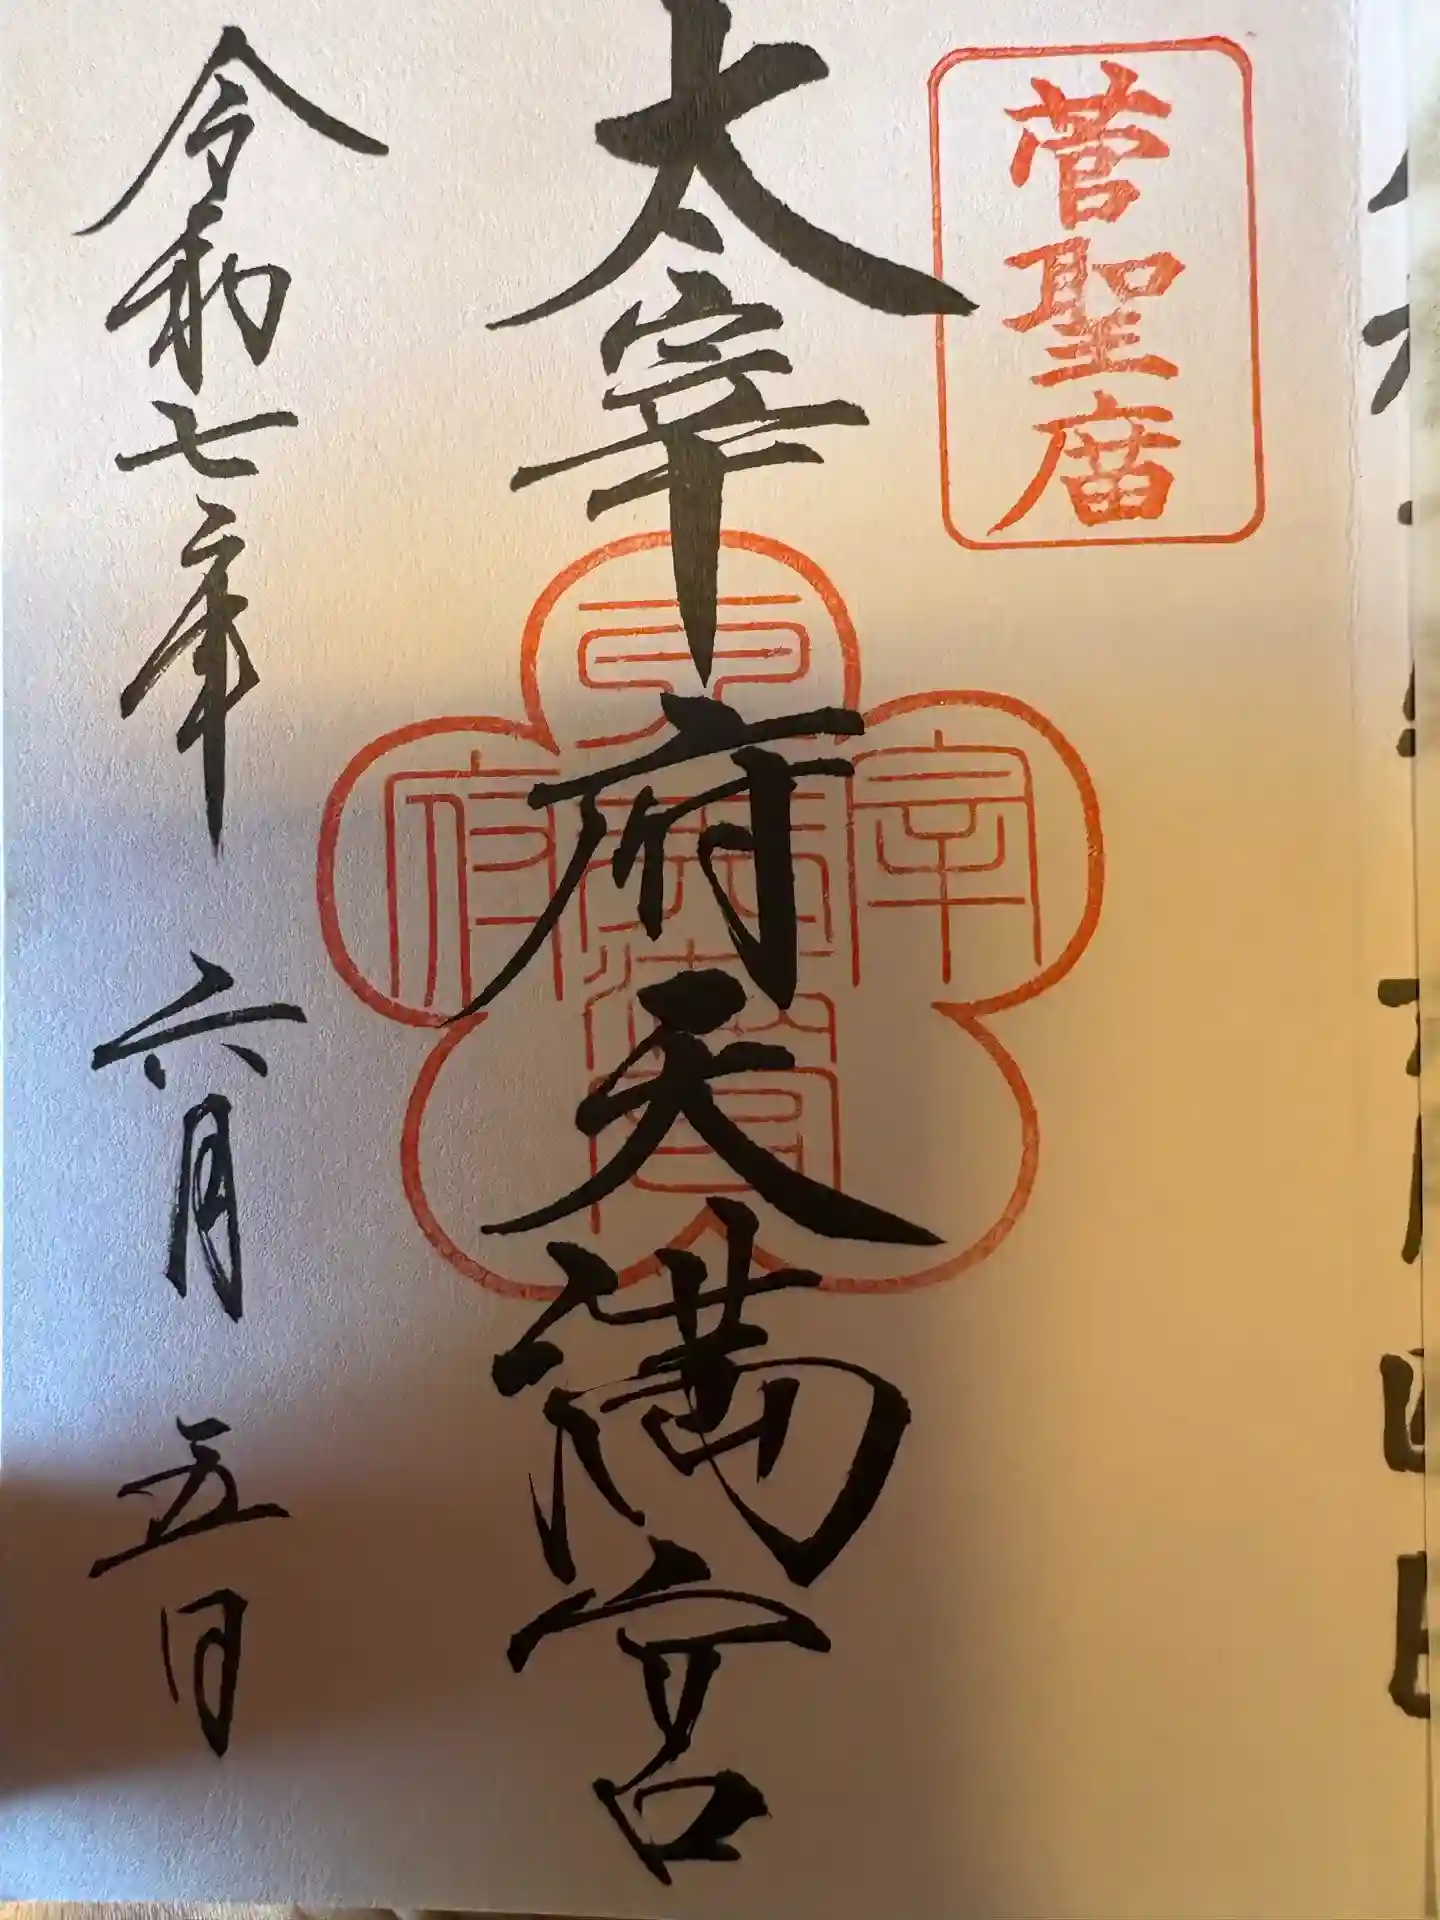 菅聖庿
太宰府天満宮
太宰府天満宮
令和七年 六月 五日